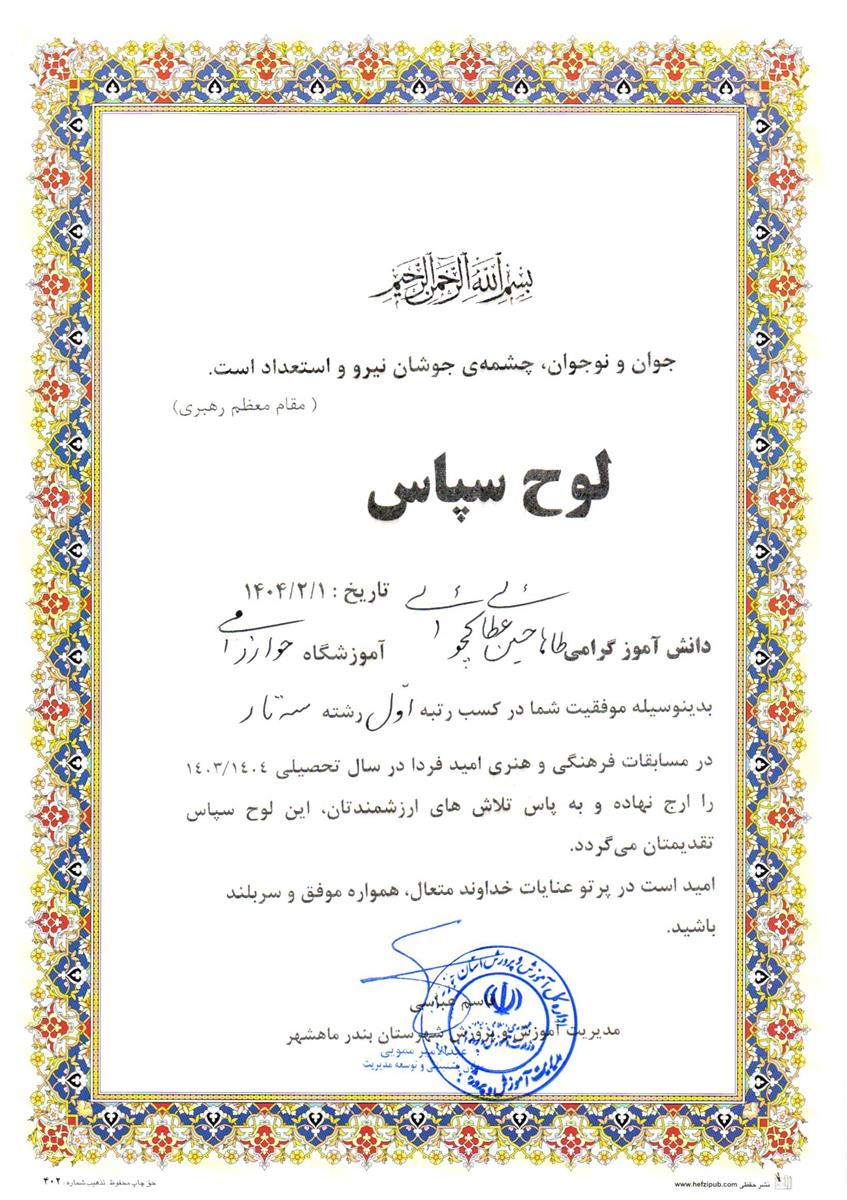 بسم الله الرحمن الرحیم
جوان و نوجوان، چشمه‌ی جوشان نیرو و استعداد است.
( مقام معظم رهبری)
لوح سپاس
تاریخ : ۱۴۰۴/۲/۱
دانش آموز گرامی طاها حسین عطایی آموزشگاه خوارزمی
بدینوسیله موفقیت شما در کسب رتبه اوّل رشته سه تار
در مسابقات فرهنگی و هنری امید فردا در سال تحصیلی ۱۴۰۳/۱۴۰۴
را ارج نهاده و به پاس تلاش های ارزشمندتان، این لوح سپاس
تقدیمتان می‌گردد.
امید است در پرتو عنایات خداوند متعال، همواره موفق و سربلند
باشید.
قاسم عباسی
مدیریت آموزش و پرورش شهرستان بندر ماهشهر
و توسعه مدیریت
اداره کل آموزش و پرورش استان
حق چاپ محفوظ. تذهیب شماره: ۴۰۲
نشر حفظی www.hefzipub.com